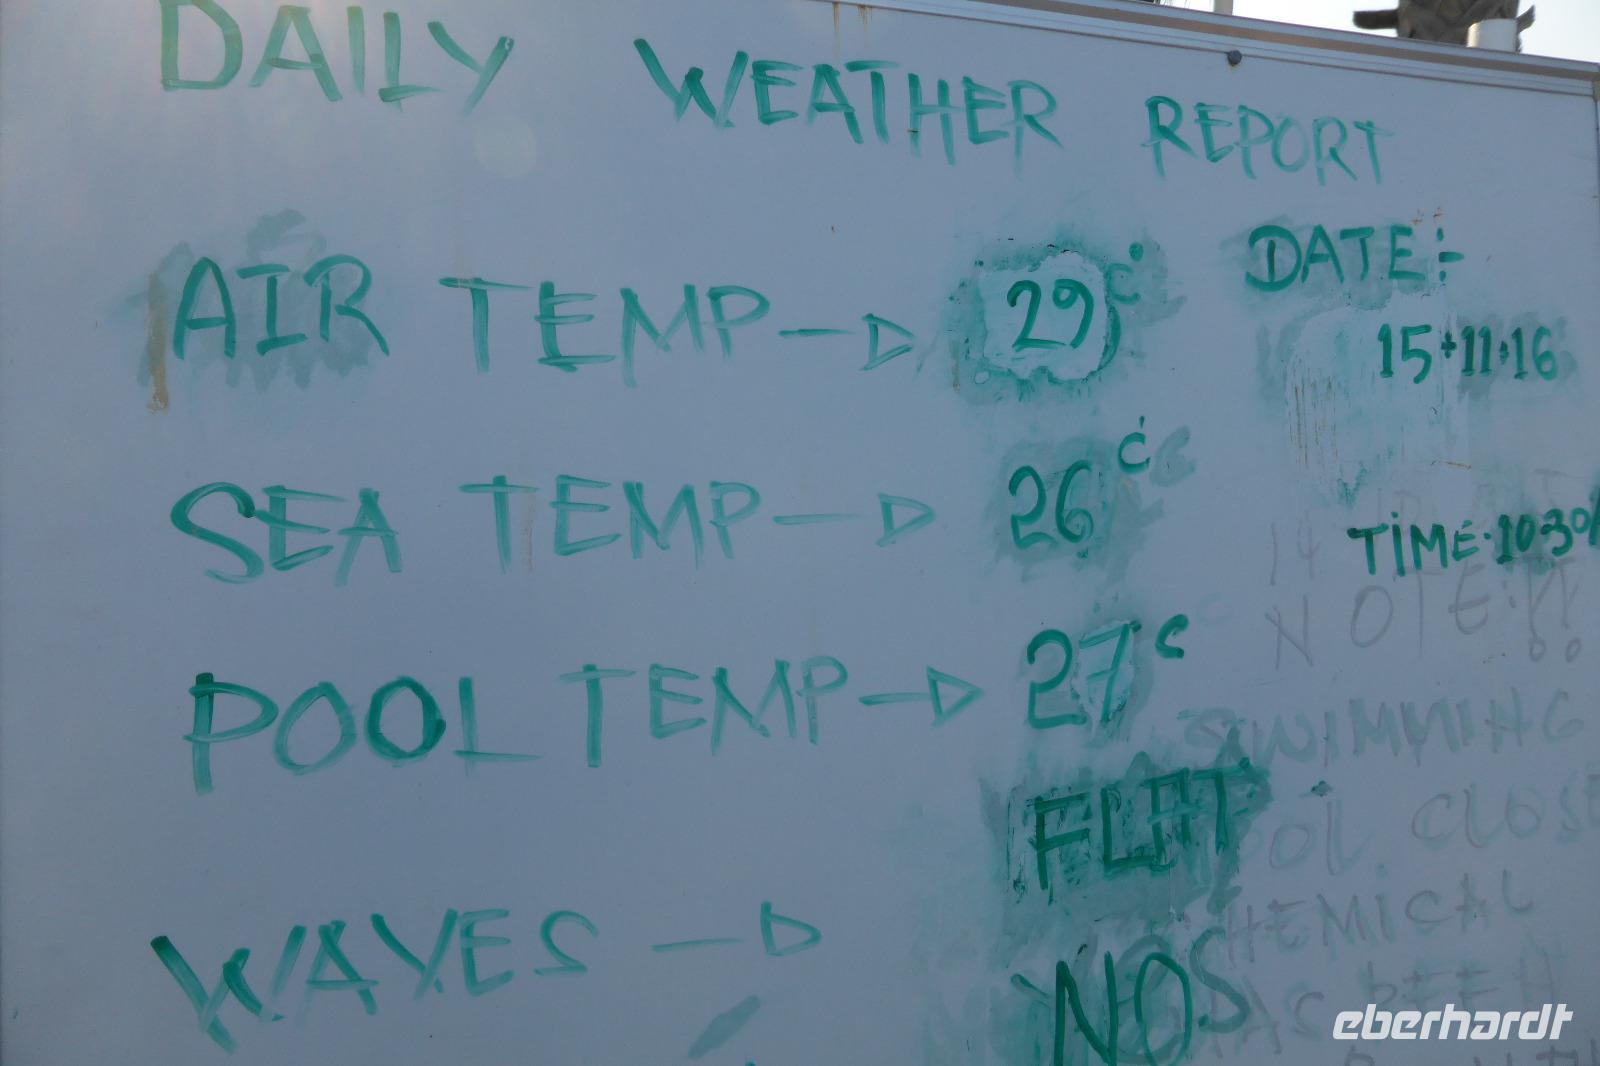 DAILY WEATHER REPORT
AIR TEMP 29 C°
DATE:-
15·11·16
SEA TEMP 26 C
TIME·10·30
POOL TEMP 27 C
FLAT
WAVES
NOS
NOTE:
SWIMMING
POOL CLOSE
CHEMICAL
HAS BEEN
eberhardt